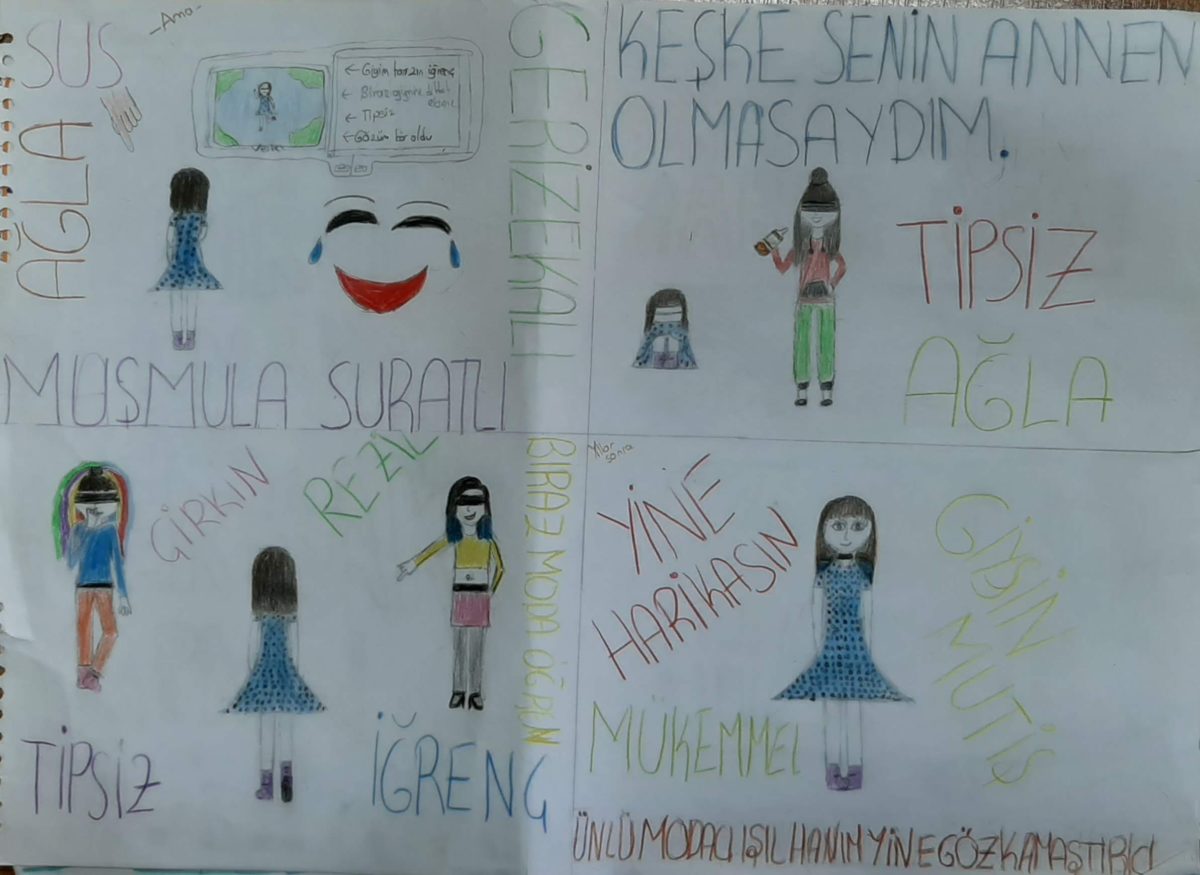 SUS
AĞLA
-Ama-
← Giyim tarzın iğrenç
←
← Tipsiz
← Gözüm kör oldu
GERİZEKALI
MUŞMULA SURATLI
KEŞKE SENİN ANNEN
OLMASAYDIM.
TİPSİZ
AĞLA
GİRKİN
REZİL
BIRAZ MODA ÖĞRUN
TİPSİZ
İĞRENÇ
Yıllar
sonra
YİNE
HARİKASIN
GİYSİN
MUTİŞ
MÜKEMMEL
ÜNLÜ MODACI IŞIL HANIM YİNE GÖZ KAMAŞTIRICI